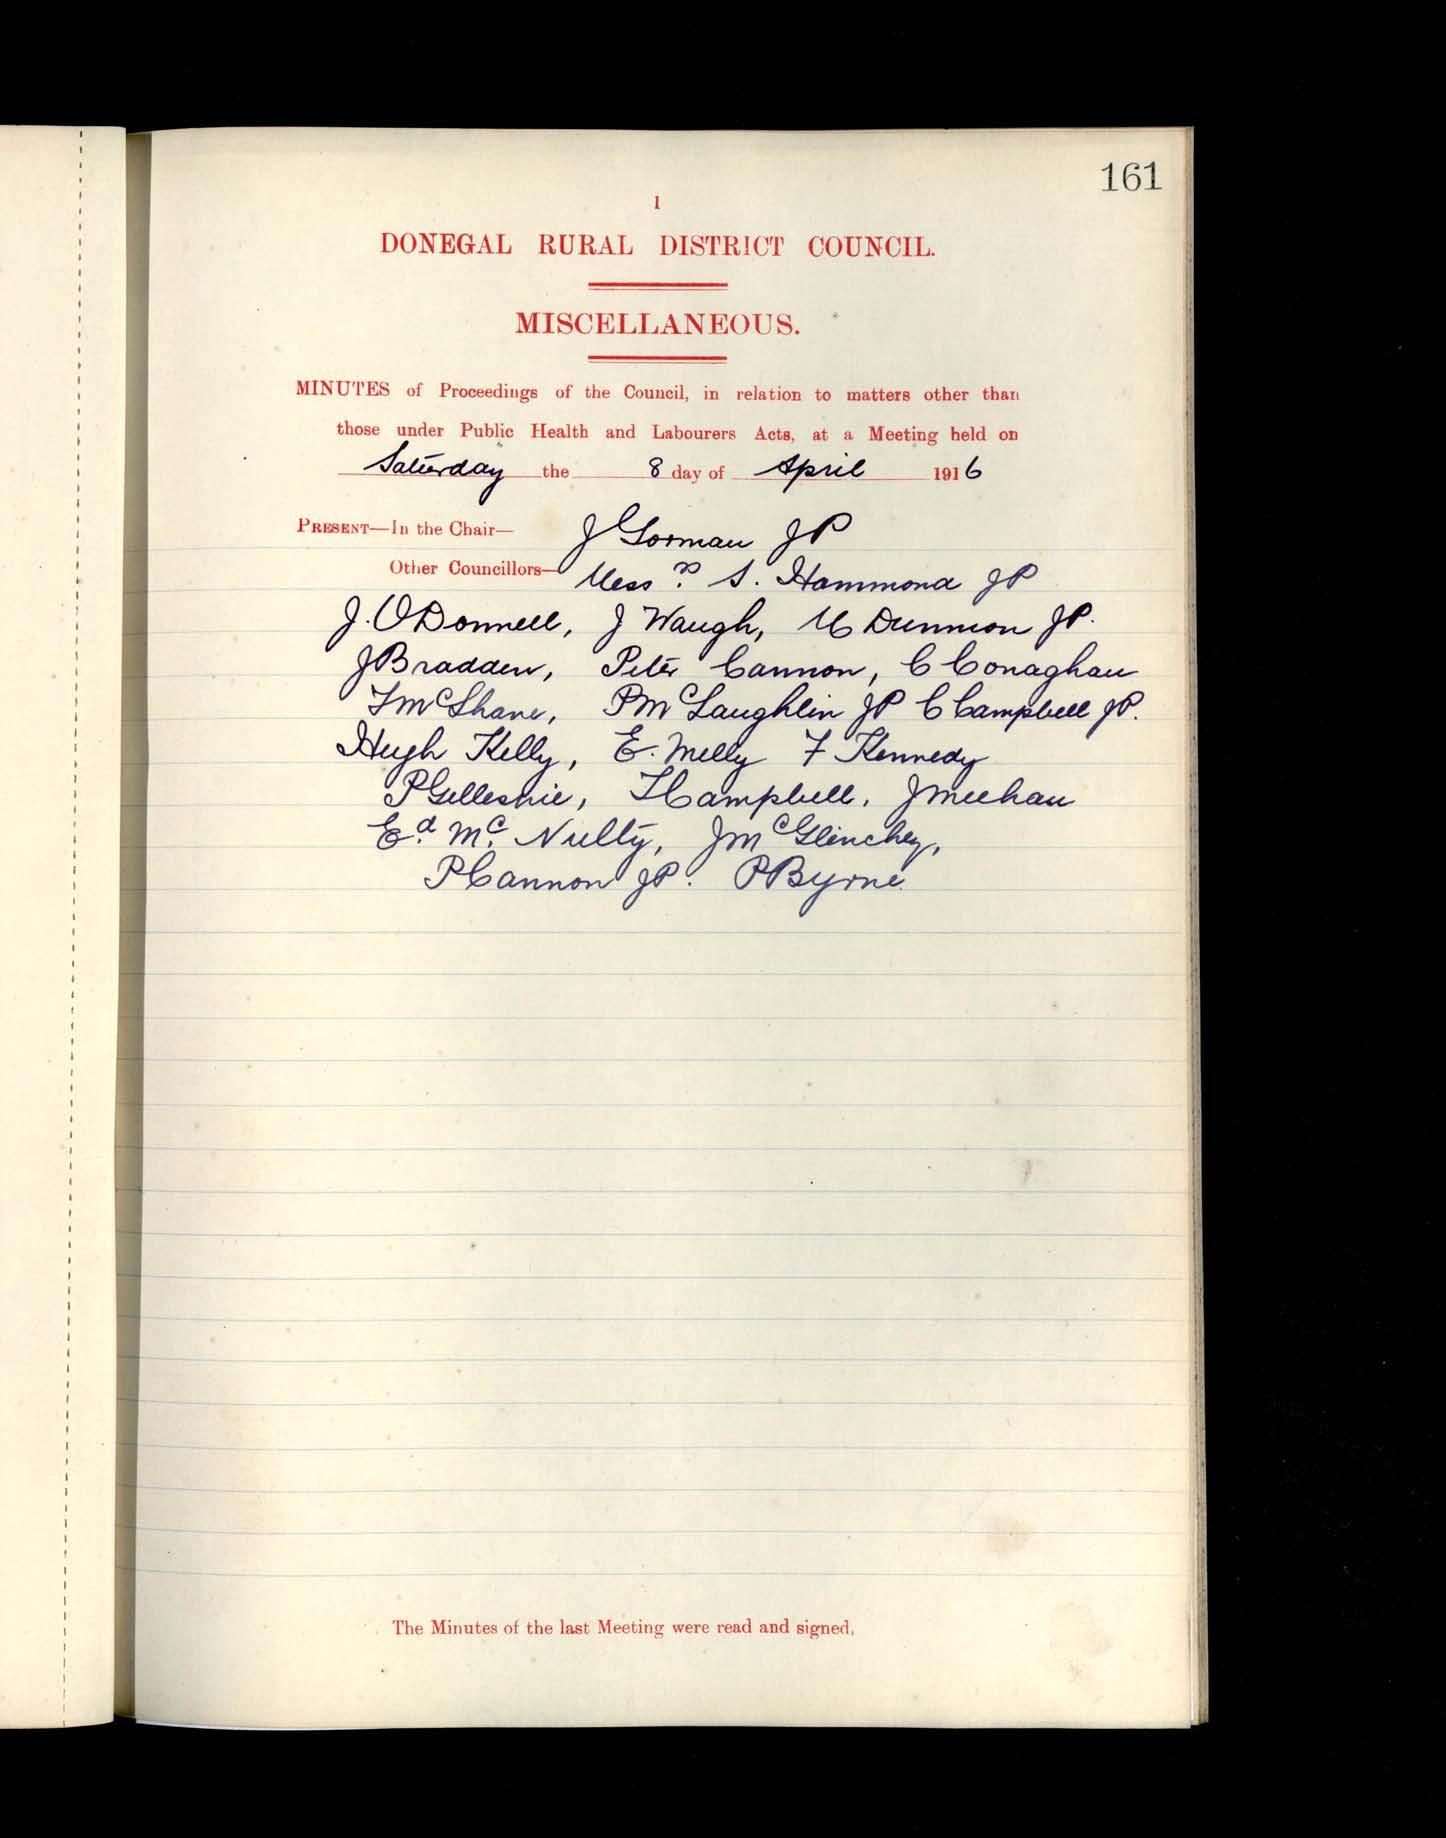 161
1
DONEGAL RURAL DISTRICT COUNCIL.
MISCELLANEOUS.
MINUTES of Proceedings of the Council, in relation to matters other than
those under Public Health and Labourers Acts, at a Meeting held on
Saturday the 8 day of April 1916
PRESENT—In the Chair— J Gorman JP
Other Councillors— Messrs. S. Hammond JP
J. O'Donnell, J Waugh, M Dunnion JP.
J Bradden, Peter Cannon, C Conaghan
T McShane, P McLaughlin JP C Campbell JP.
Hugh Kelly, E. Melly F Kennedy
P Gillespie, T Campbell, J Meehan
Ed. Mc. Nulty, J McGlinchey,
P Cannon JP. P Byrne.
The Minutes of the last Meeting were read and signed,